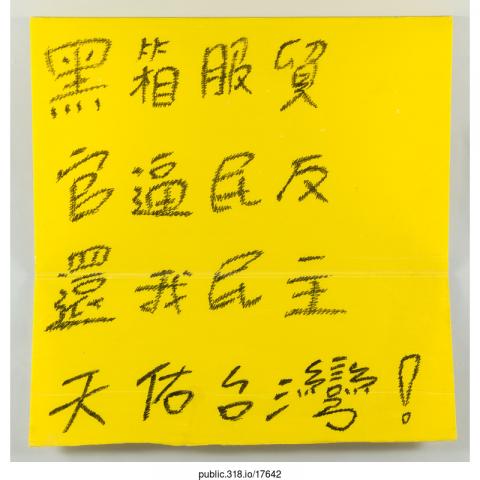 黑箱服貿
官逼民反
還我民主
天佑台灣!
public.318.io/17642